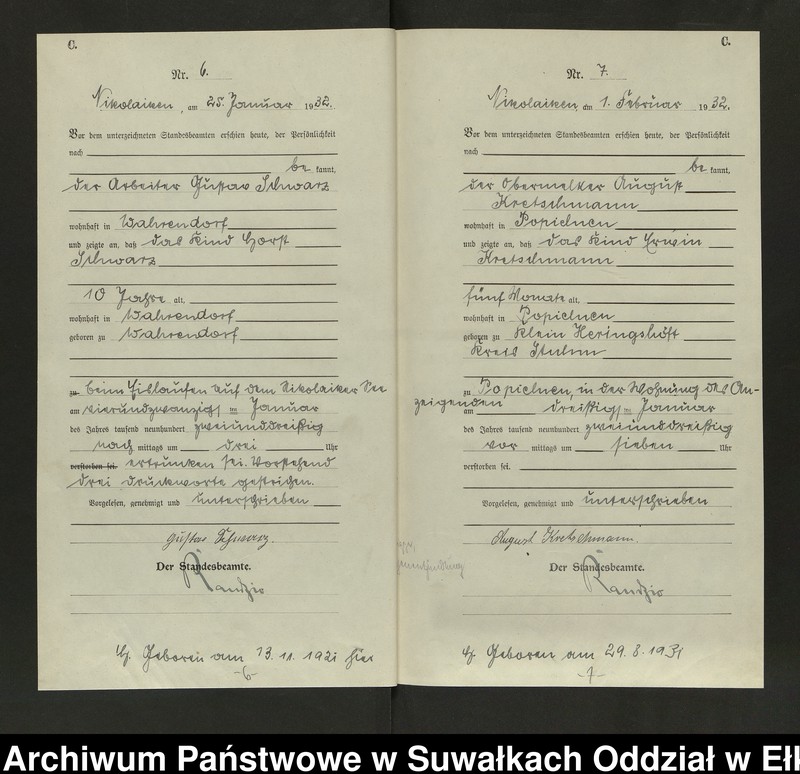 C.
Nr. 6.
Nikolaiken, am 25. Januar 1932.
Vor dem unterzeichneten Standesbeamten erschien heute, der Persönlichkeit
nach
be kannt,
der Arbeiter Gustav Schwarz
wohnhaft in Wahrendorf
und zeigte an, daß das Kind Horst
Schwarz
10 Jahre alt,
wohnhaft in Wahrendorf
geboren zu Wahrendorf
zu beim Eislaufen auf dem Nikolaiker See
am vierundzwanzigsten Januar
des Jahres tausend neunhundert zweiunddreißig
nach mittags um drei Uhr
verstorben sei. ertrunken sei. Vorstehend
drei Druckworte gestrichen.
Vorgelesen, genehmigt und unterschrieben
Gustav Schwarz.
Der Standesbeamte.
Randzio
Geboren am 13.11.1921 hier
-6-
C.
Nr. 7.
Nikolaiken, am 1. Februar 1932.
Vor dem unterzeichneten Standesbeamten erschien heute, der Persönlichkeit
nach
be kannt,
der Obermelker August
Kretschmann
wohnhaft in Popielnen
und zeigte an, daß das Kind Erwin
Kretschmann
fünf Monate alt,
wohnhaft in Popielnen
geboren zu Klein Heringshöft
Kreis Stuhm
zu Popielnen, in der Wohnung des An-
zeigenden
am dreißigsten Januar
des Jahres tausend neunhundert zweiunddreißig
vor mittags um sieben Uhr
verstorben sei.
Vorgelesen, genehmigt und unterschrieben
August Kretschmann.
Der Standesbeamte.
Randzio
Geboren am 29.8.1931
-7-
Archiwum Państwowe w Suwałkach Oddział w Ełk